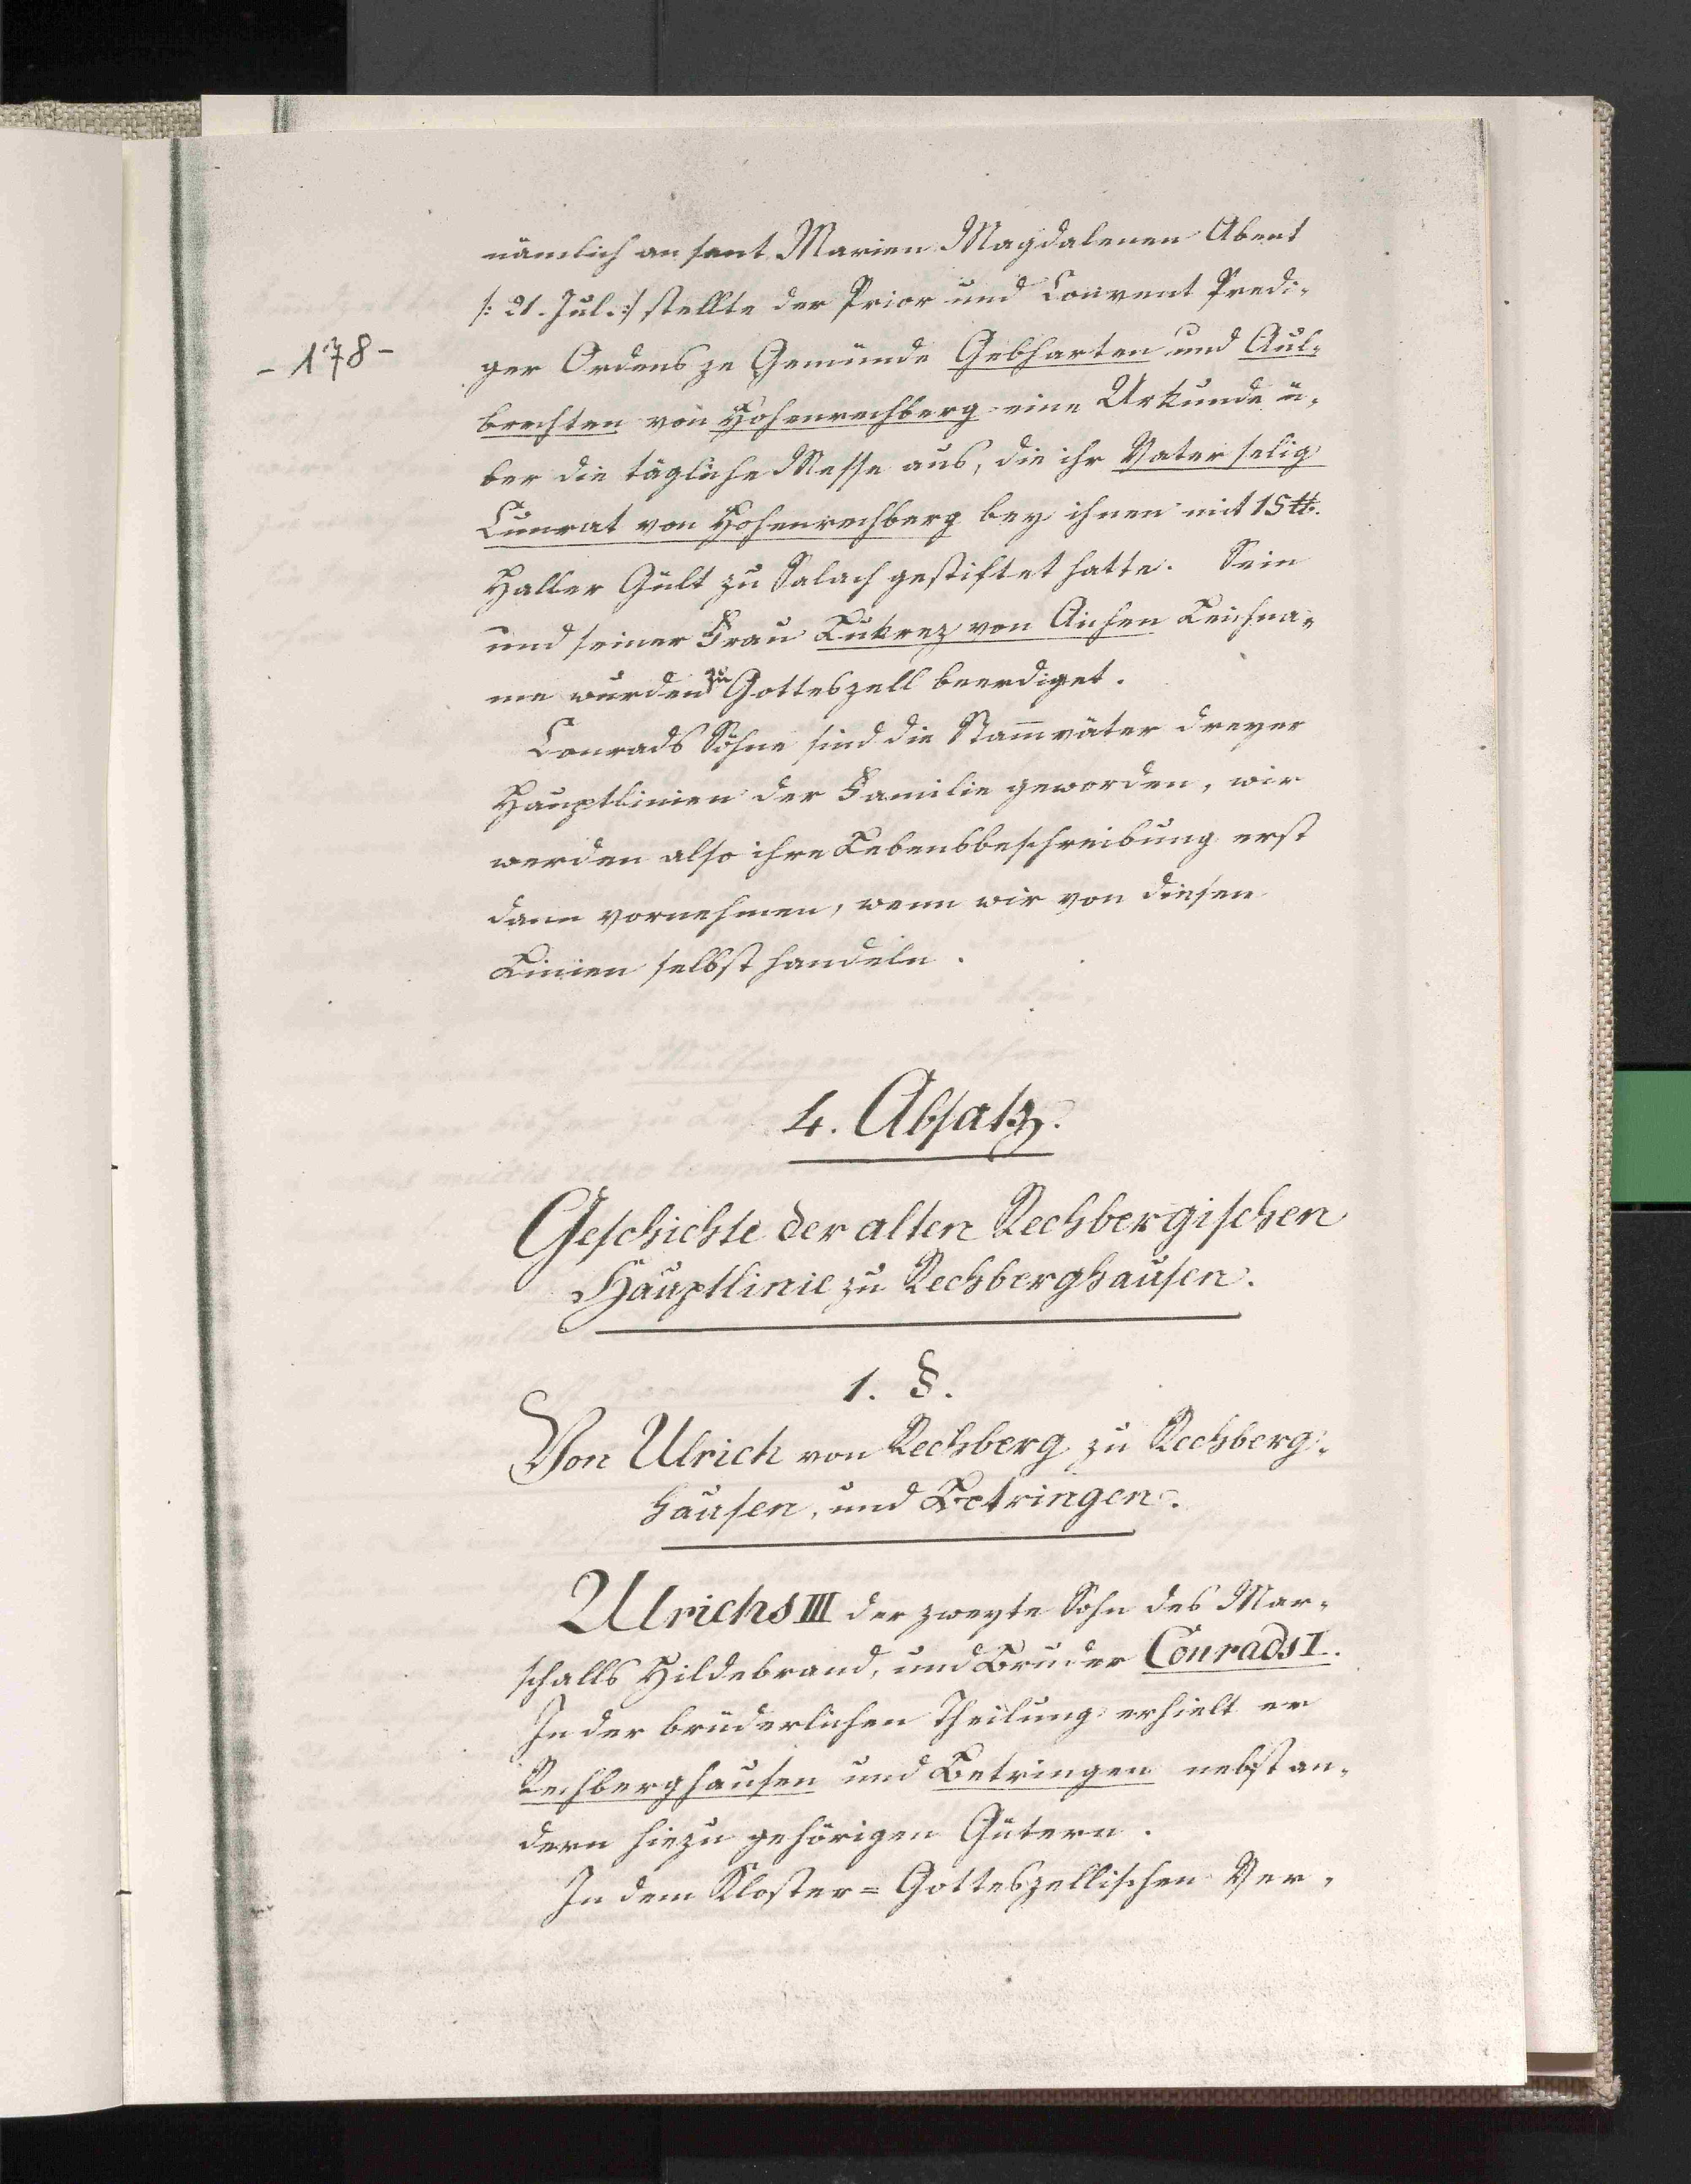 nämlich an sant Marien Magdalenen Abent
/: 21. Jul. :/ stellte der Prior und Convent Predi-
- 178 -
ger Ordens ze Gemünde Gebharten und Aul-
brechten von Hohenrechberg eine Urkunde ü-
ber die tägliche Messe aus, die ihr Vater selig
Cunrat von Hohenrechberg bey ihnen mit 15 ℔.
Haller Gült zu Salach gestiftet hatte. Sein
und seiner Frau Lukrez von Aichen Leichna-
me wurden zu Gotteszell beerdiget.
Conrads Söhne sind die Stam̅väter dreyer
Hauptlinien der Familie geworden, wir
werden also ihre Lebensbeschreibung erst
dann vornehmen, wenn wir von diesen
Linien selbst handeln.
4. Absatz.
Geschichte der alten Rechbergischen
Hauptlinie zu Rechberghausen.
1. §.
Von Ulrich von Rechberg zu Rechberg-
hausen, und Betringen.
Ulrichs III der zweyte Sohn des Mar-
schalls Hildebrand, und Bruder Conrads I.
In der brüderlichen Theilung erhielt er
Rechberghausen und Betringen nebst an-
dern hiezu gehörigen Gütern.
In dem Kloster=Gotteszellischen Ver-